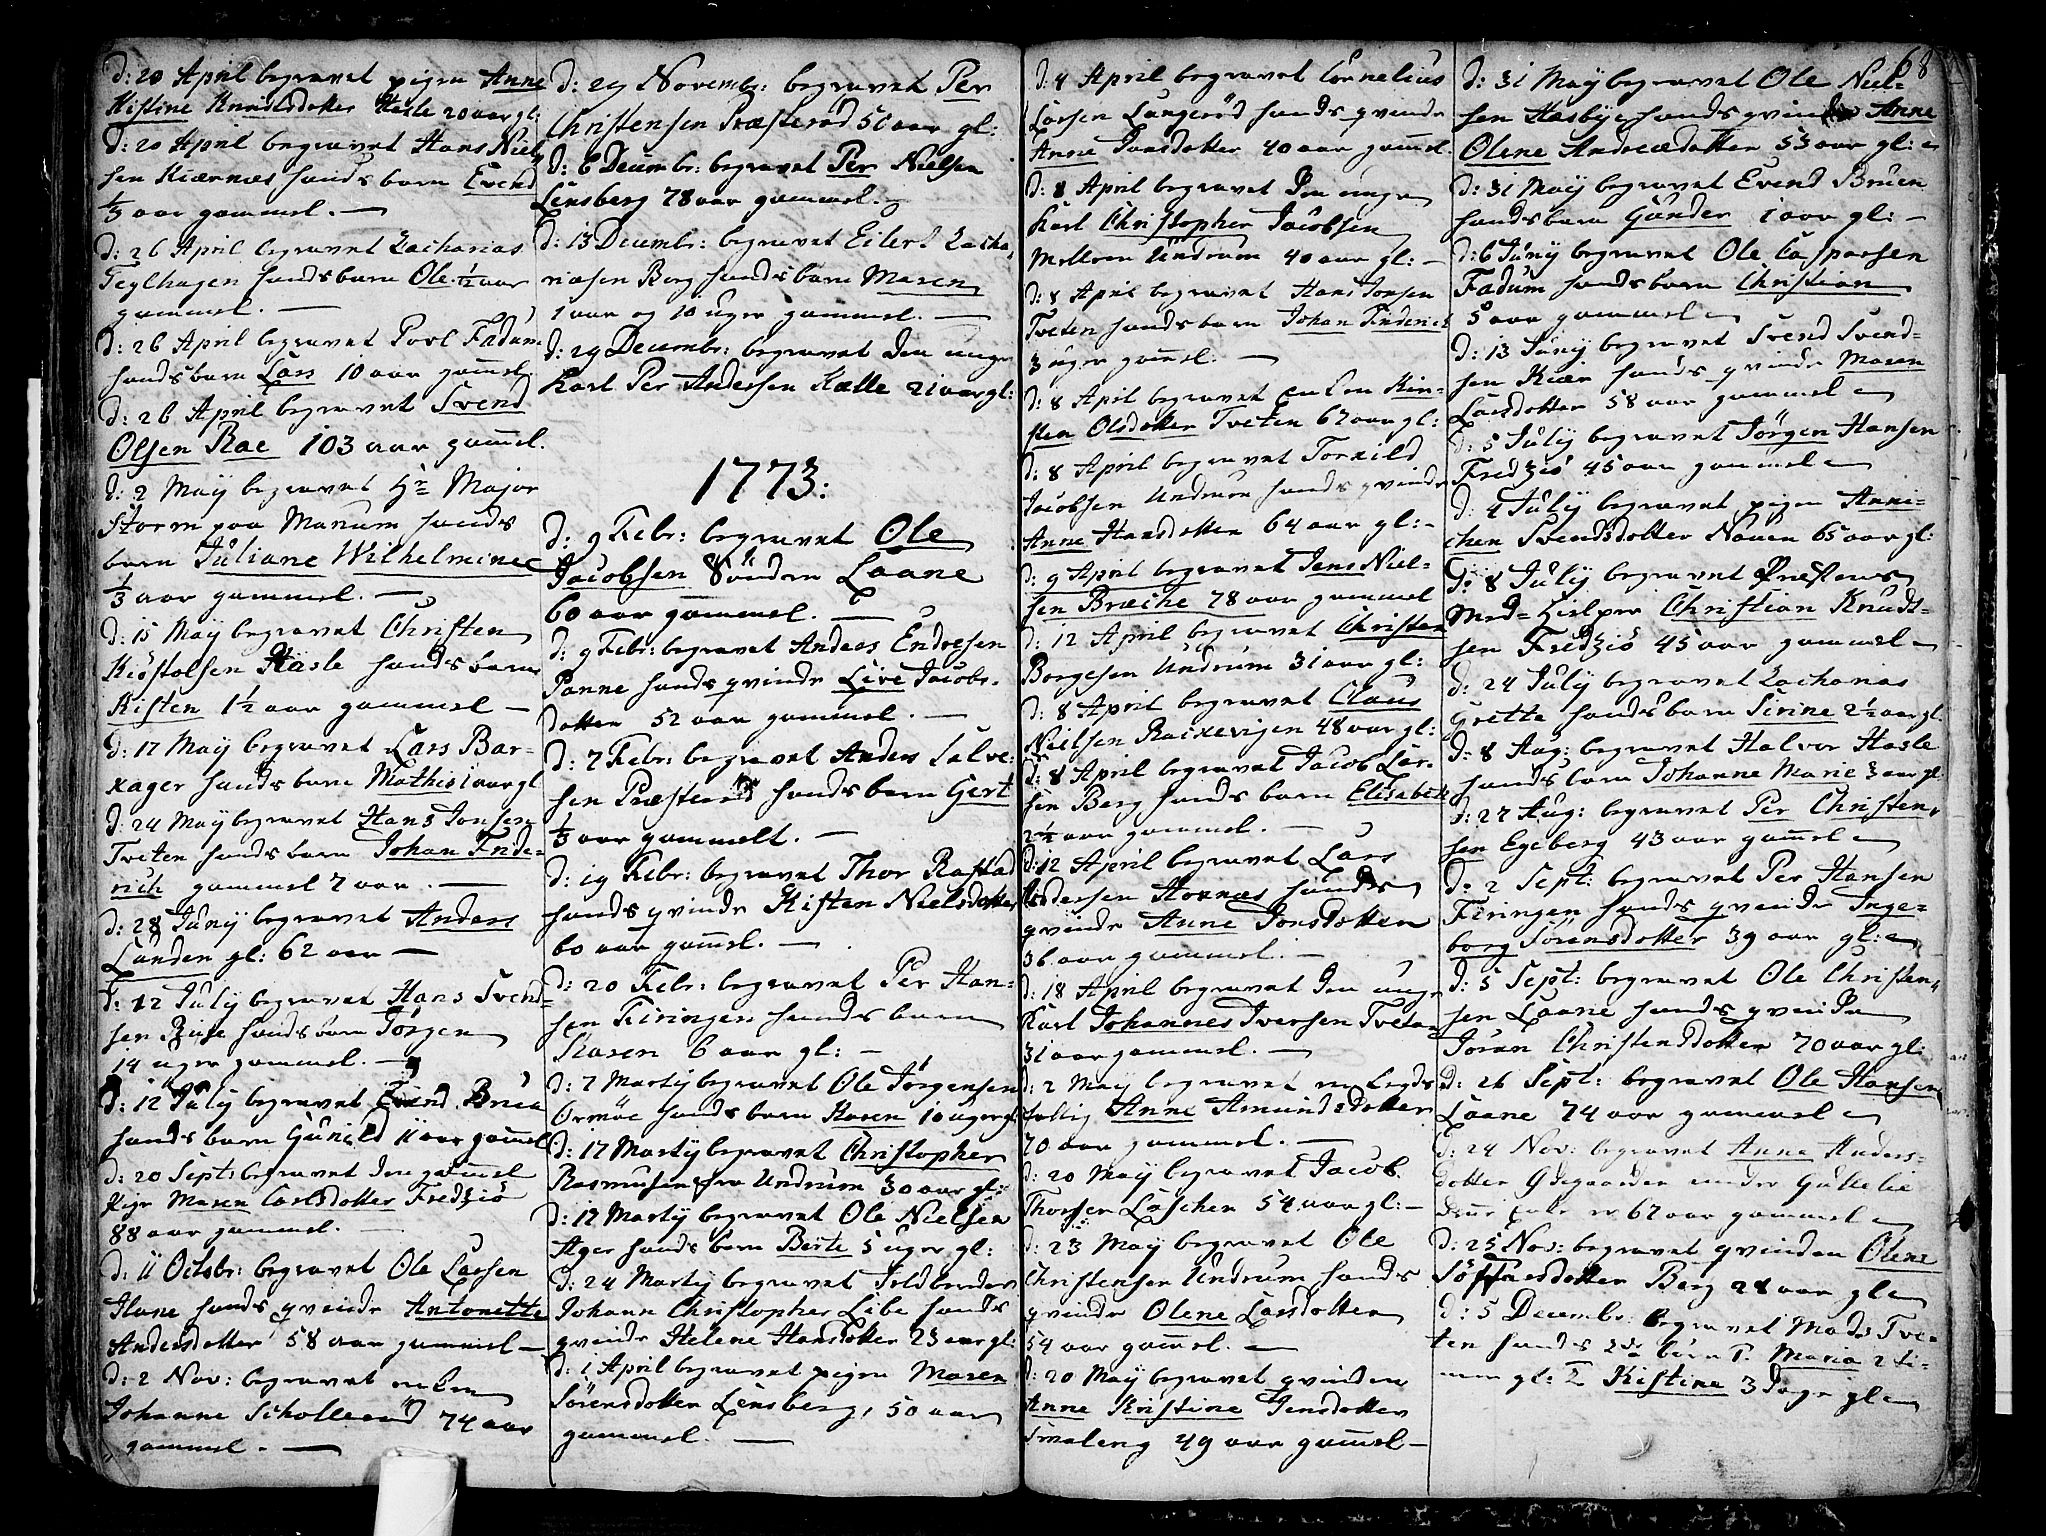 d: 20 April begravet pigen Anne
Kistine Knudsdotter Hasle 20 aar gl:
d: 20 April begravet Hans Niel-
sen Kiærnæs hands barn Evend
1/3 aar gammel. —
d: 26 April begravet Zacharias
Teglhagen hands barn Ole 1/2 aar
gammel. —
d: 26 April begravet Povl Fadum
hands barn Lars 10 aar gam̄el.
d: 26 April begravet Svend
Olsen Rae 103 aar gam̄el.
d: 2 Maÿ begravet Hr Major
Storm paa Manum hands
barn Juliane Wilhelmine
1/3 aar gammel. —
d: 15 Maÿ begravet Christen
Kiøstolsen Hasle hands barn
Kisten 1 1/2 aar gammel —
d: 17 Maÿ begravet Lars Bar-
kager hands barn Mathis 1 aar gl
d: 24 Maÿ begravet Hans Jonsen
Tveten hands barn Johan Fride-
rich gammel 7 aar. —
d: 28 Junÿ begravet Anders
Lunden gl: 62 aar —
d: 12 Julÿ begravet Hans Svend-
sen hands barn Jørgen
14 uger gammel. —
d: 12 Julÿ begravet Evend Bruu
hands barn Gunild 11 aar gam̄el
d: 20 Sept: begravet den gam̄el
Pige Maren Carlsdotter Fredziø
88 aar gammel. —
d: 11 Octobr: begravet Ole Larsen
Hane hands qvinde Antonette
Andersdotter 58 aar gammel —
d: 2 Nov: begravet enken
Johanne Schollerød 74 aar
gammel. —
d: 29 Novembr: begravet Per
Christensen Præsterød 50 aar gl:
d: 6 Decembr: begravet Per Nielsen
Lensberg 78 aar gammel.
d: 13 Decembr: begravet Eilert Zacha-
riasen Borg hands barn Maren
1 aar og 10 uger gammel. —
d: 29 Decembr: begravet den unge
Karl Per Andersen Hætte 21 aar gl:
1773:
d: 9 Febr: begravet Ole
Jacobsen Sønden Laane
60 aar gammel. —
d: 9 Febr: begravet Anders Endresen
Panne hands qvinde Live Jacobs-
dotter 52 aar gammel. —
d: 7 Febr: begravet Anders Salve-
sen Præsterød hands barn Gert
1/3 aar gammelt. —
d: 19 Febr: begravet Thor Rastad
hands qvinde Kisten Nielsdotter
60 aar gam̄el. —
d: 20 Febr: begravet Per Han-
sen Firingen hands barn
Karen 6 aar gl: —
d: 7 Martÿ begravet Ole Jørgensen
Ormøe hands barn Karen 10 uger gl
d: 17 Martÿ begravet Christopher
Rasmusen fra Undrum 30 aar gl:
d: 17 Martÿ begravet Ole Nielsen
Ager hands barn Berte 5 uger gl:
d: 24 Martÿ begravet Feldbereder
Johann Christopher Libe hands
qvinde Helene Hansdotter 23 aar gl:
d: 1 April begravet pigen Maren
Sørensdotter Lensberg, 50 aar
gammel. —
d: 4 April begravet Cornelius
Larsen Langerød hands qvinde
Anne Jonsdotter 40 aar gam̄el
d: 8 April begravet den unge
Karl Christopher Jacobsen
Mellem Undrum 40 aar gl: —
d: 8 April begravet Hans Jonsen
Tveten hands barn Johan Friderich
3 uger gam̄el. —
d: 8 April begravet enken Kir-
sten Olsdotter Tveten 67 aar gl:
d: 8 April begravet Torkild
Jacobsen Undrum hands qvinde
Anne Hansdotter 64 aar gl: —
d: 9 April begravet Jens Niel-
sen Bræche 78 aar gammel
d: 12 April begravet Christen
Borgesen Undrum 31 aar gl:
d: 8 April begravet Claus
Nielsen Rakkevigen 48 aar gl:
d: 8 April begravet Jacob Lar-
sen Berg hands barn Elisabeth
2 1/2 aar gammel. —
d: 12 April begravet Lars
Pedersen Hornæs hands
qvinde Anne Jonsdotter
36 aar gammel. —
d: 18 April begravet den unge
Karl Johannes Iversen Tveten
31 aar gammel. —
d: 2 Maÿ begravet en Legds
fattig Anne Amundsdotter
70 aar gammel. —
d: 20 Maÿ begravet Jacob
Thorsen Løschen 54 aar gl: —
d: 23 Maÿ begravet Ole
Christensen Undrum hands
qvinde Olene Larsdotter
54 aar gam̄el. —
d: 20 Maÿ begravet qvinden
Anne Kristine Jensdotter
Smaleng 49 aar gam̄el —
68
d: 31 Maÿ begravet Ole Niel-
sen Hasbye hands qvinde Anne
Olene Andreædotter 53 aar gl:
d: 31 Maÿ begravet Evend Bruen
hands barn Gunder 1 aar gl: —
d: 6 Junÿ begravet Ole Caspersen
Fadum hands barn Christian
5 aar gammel
d: 13 Junÿ begravet Svend Svend-
sen Kiær hands qvinde Maren
Larsdotter 58 aar gammel
d: 5 Julÿ begravet Jørgen Hansen
Fredziø 45 aar gammel
d: 4 Julÿ begravet pigen Anni-
chen Svendsdotter Nauen 65 aar gl:
d: 8 Julÿ begravet Præstens
Med-Hielper Christian Knuds-
sen Fredziø 45 aar gammel
d: 24 Julÿ begravet Zacharias
Grette hands barn Sirine 2 1/2 aar gl
d: 8 Aug: begravet Halvor Hasle
hands barn Johanne Marie 3 aar gl
d: 27 Aug: begravet Per Christen-
sen Egeberg 43 aar gam̄el
d: 2 Sept: begravet Per Hansen
Firingen hands qvinde Inge-
borg Sørensdotter 39 aar gl:
d: 5 Sept: begravet Ole Christen-
sen Laane hands qvinde
Joran Christensdotter 70 aar gl:
d: 26 Sept: begravet Ole Hansen
Laane 74 aar gammel
d: 24 Nov: begravet Anne Anders-
dotter Ødegaarden under Gullelie
67 aar gammel
d: 25 Nov: begravet qvinden Olene
Søffrensdotter Berg 28 aar gl
d: 5 Decembr: begravet Mads Tve-
ten hands 2de børn T. Maria 2 ti-
mer gl: & Kistine 3 dage gl